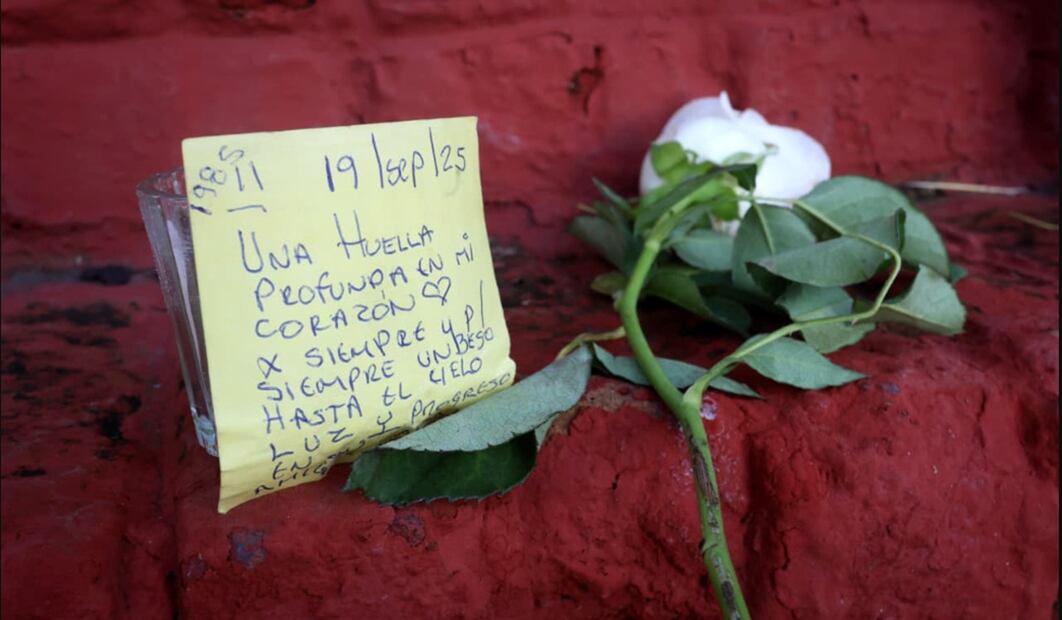 1985
11 19/sep/25
UNA HUELLA
PROFUNDA EN MI
CORAZÓN ♡
X SIEMPRE Y P/
SIEMPRE UN BESO
HASTA EL CIELO
LUZ Y PROGRESO
EN